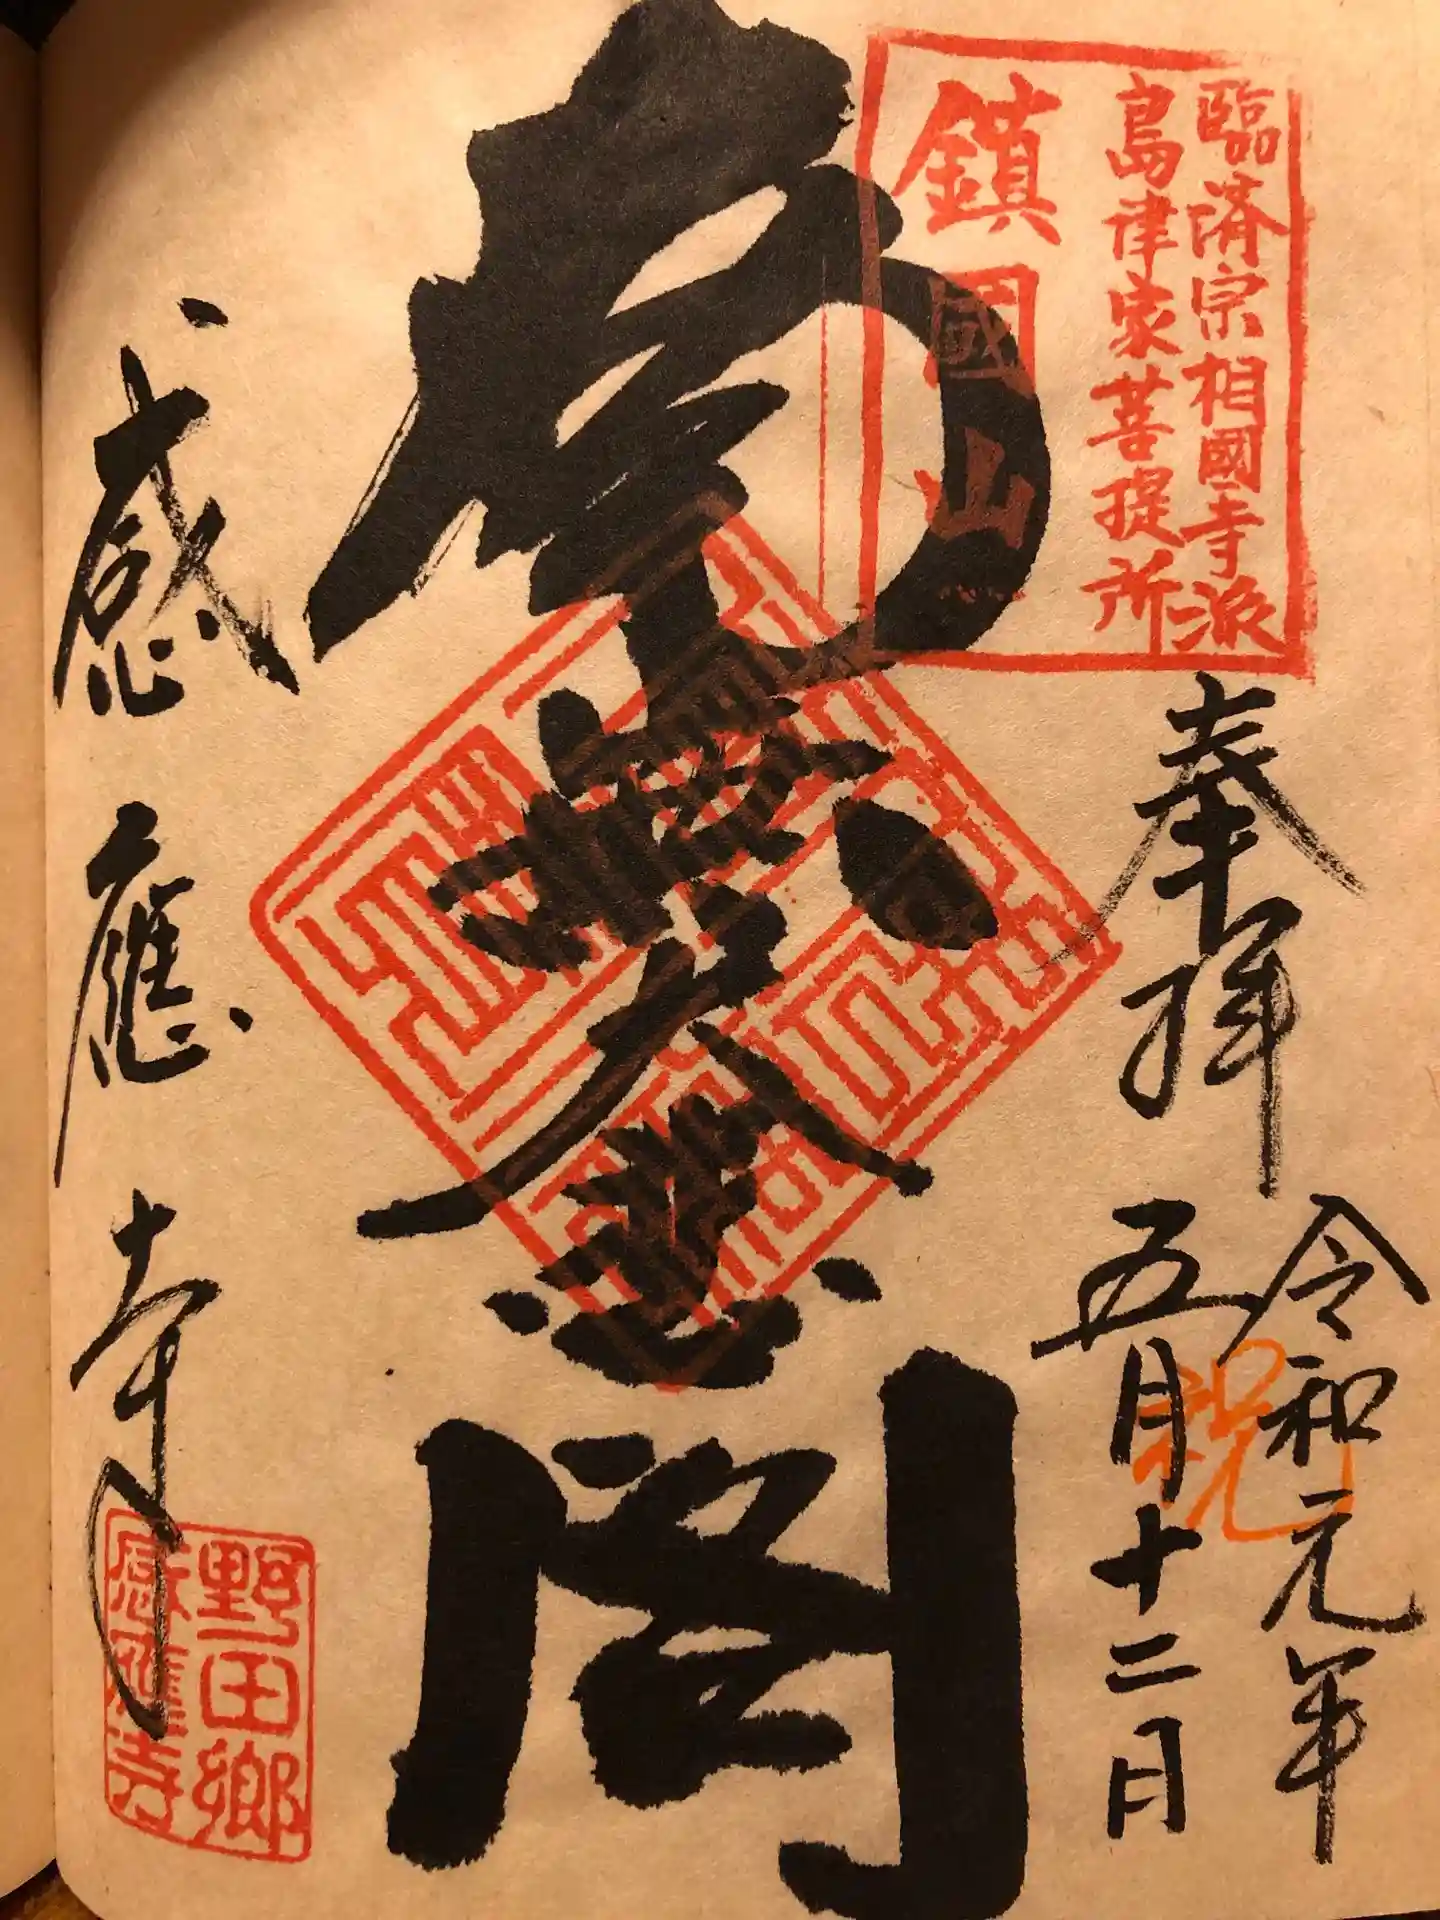 臨済宗相國寺派
島津家菩提所
鎮國山
奉拝
令和元年
五月十二日
祝
大悲閣
感應寺
野田郷
感應寺